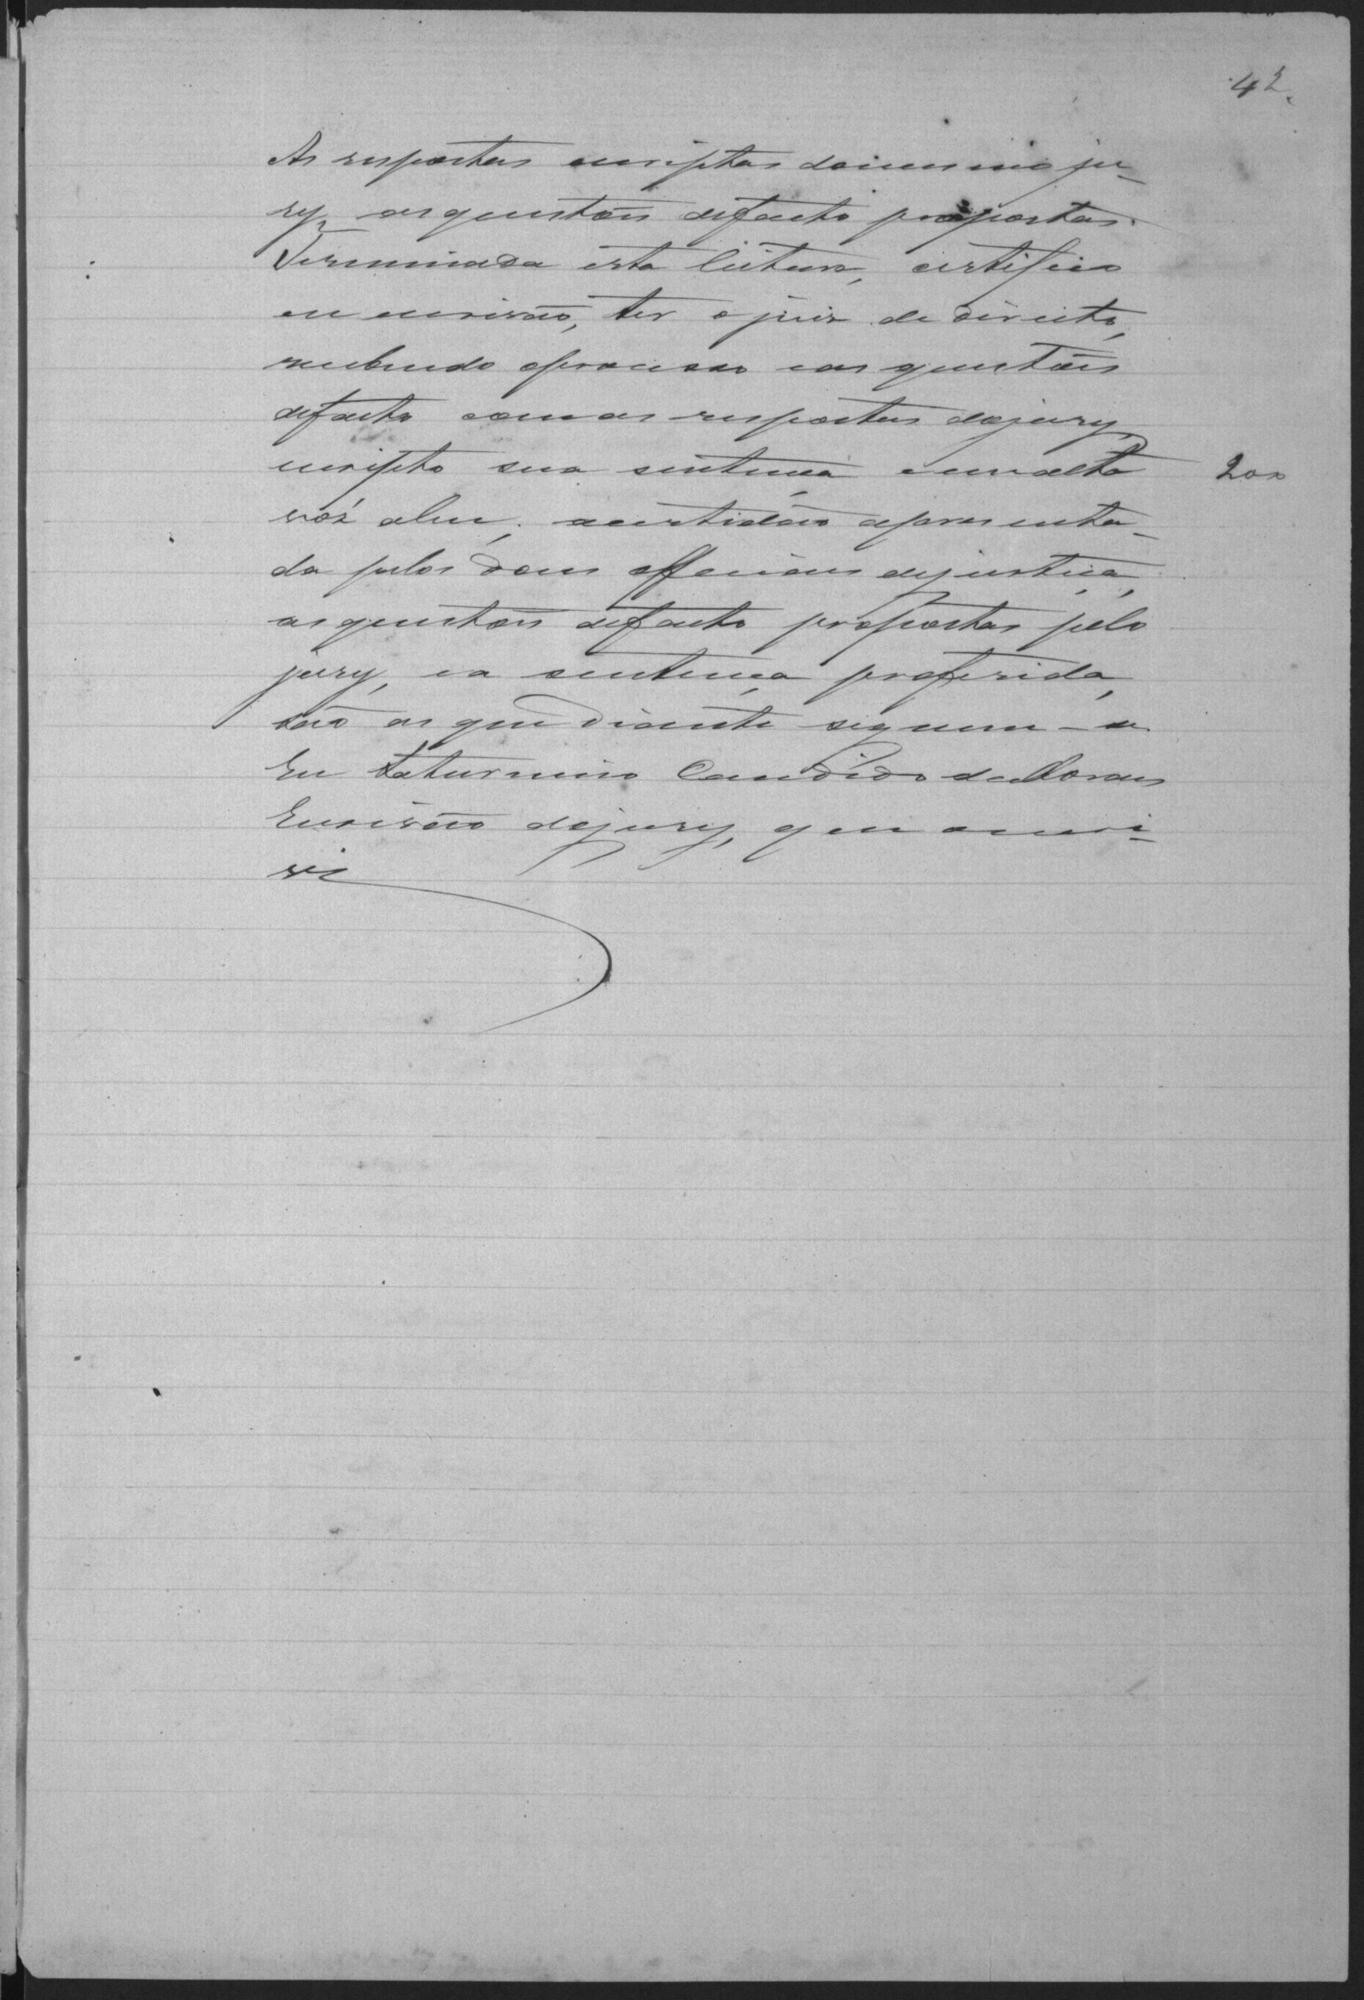 42
As respostas escriptas do mesmo ju-
ry as questões de facto propostas.
Terminada esta leitura, certifico
eu escrivão, ter o juiz de direito,
recebendo o processo e as questões
de facto com as respostas do jury,
escripto sua sentença e em alta
200
voz a leu; a certidão apresenta-
da pelos dous officiaes de justiça,
as questões de facto propostas pelo
jury, e a sentença proferida,
são as que diante seguem-se.
Eu Saturnino Candido de Moraes
Escrivão do jury, que o escre-
vi